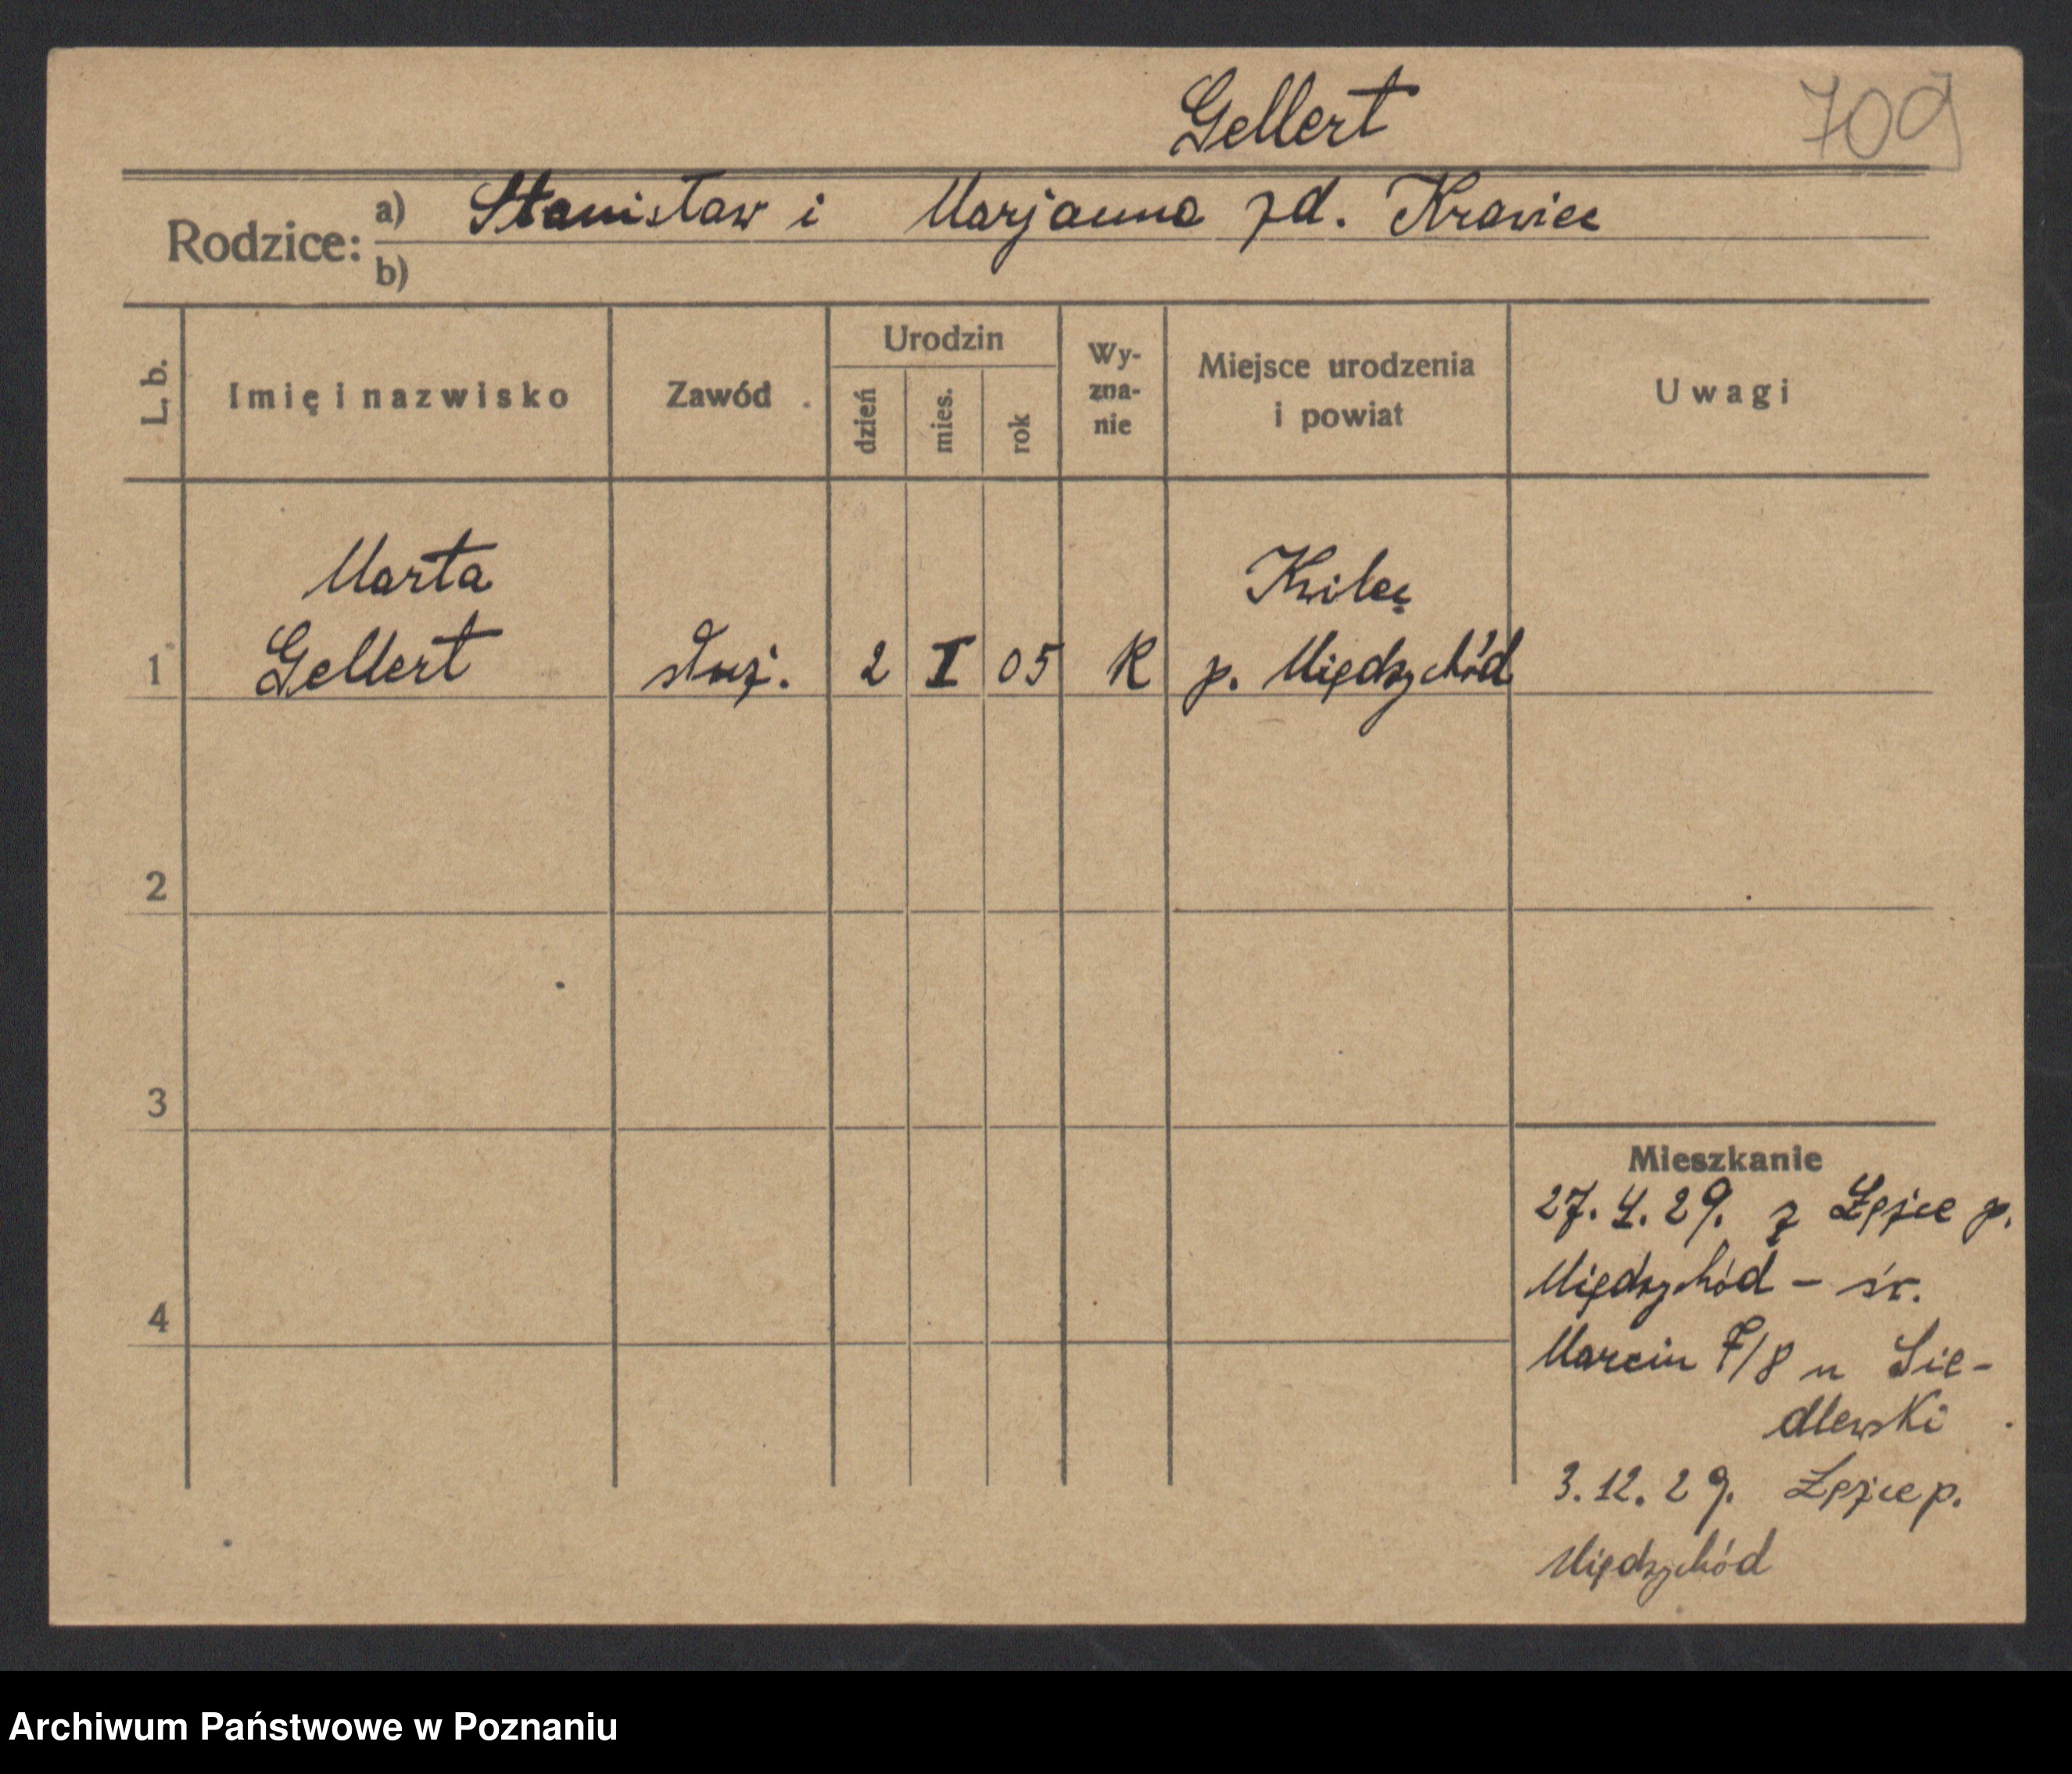 Gellert
709
Rodzice:
a) Stanisław i Marjanna zd. Krawiec
b)
L. b.
Imię i nazwisko
Zawód
Urodzin
dzień
mies.
rok
Wy-
zna-
nie
Miejsce urodzenia
i powiat
Uwagi
Marta Kwilcz
1 Gellert służ. 2 I 05 K p. Międzychód
2
3
4
Mieszkanie
27. 4. 29. z p.
Międzychód - św.
Marcin F/8 u Sie-
dlewski
3. 12. 29. p.
Międzychód
Archiwum Państwowe w Poznaniu